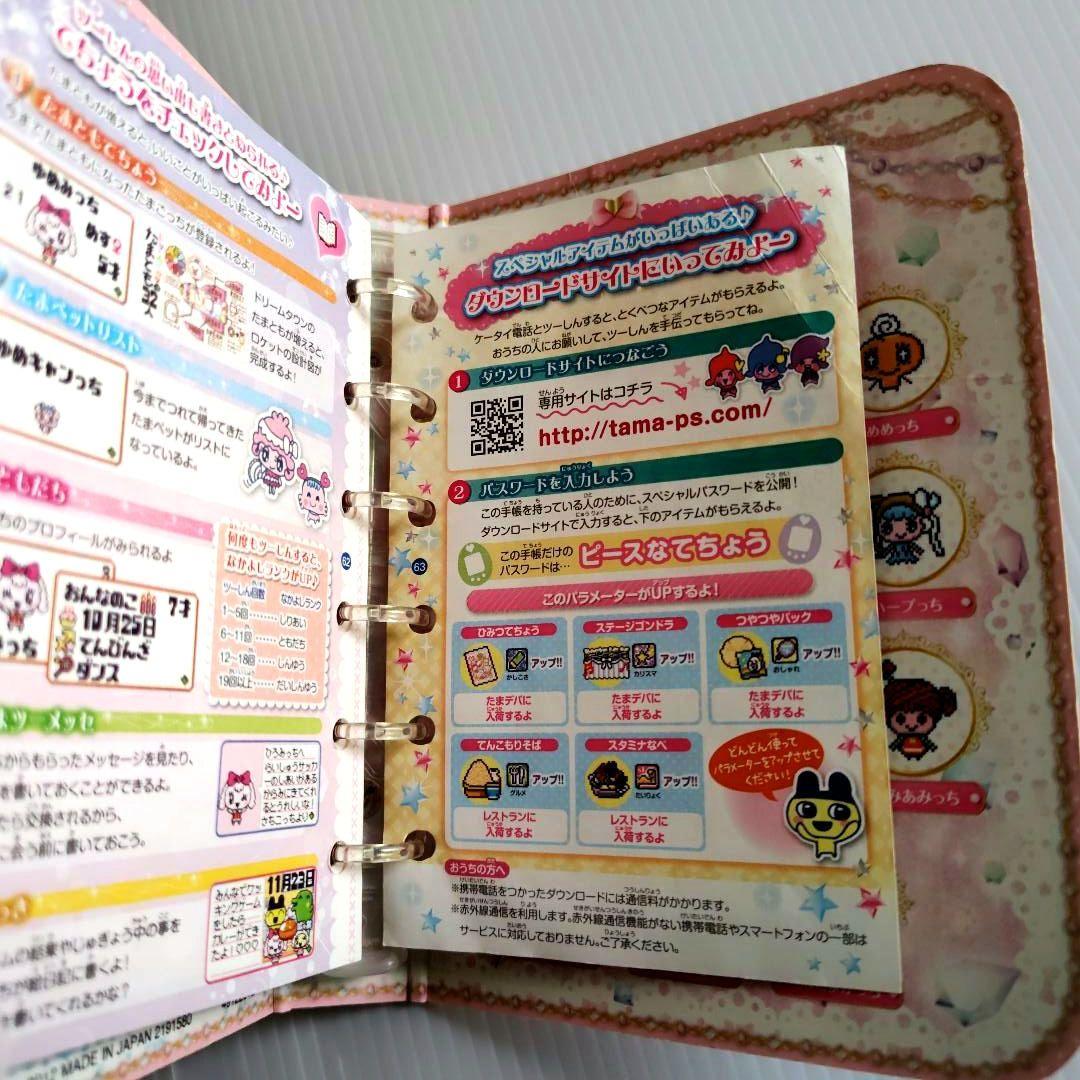 ツーしんの思い出も書きとめられる♪
てちょうをチェックしてみよー
たまともが増えると、いいことがいっぱい起こるみたい♪
たまともてちょう
今までたまともになったたまごっちが登録されるよ!
ゆめみっち
21
めす
5才
たまとも
ドリームタウンの
たまともが増えると、
ロケットの設計図が
完成するよ!
たまペットリスト
ゆめキャンっち
今までつれて帰ってきた
たまペットがリストに
なっているよ。
ともだち
ちのプロフィールがみられるよ
おんなのこ
7才
10月25日
てんびんざ
ダンス
何度もツーしんすると、
なかよしランクがUP♪
ツーしん回数 なかよしランク
1~5回 ……… しりあい
6~11回 …… ともだち
12~18回 …… しんゆう
19回以上 …… だいしんゆう
62
メッセ
からもらったメッセージを見たり、
を書いておくことができるよ。
たら交換されるから、
に会う前に書いておこう。
ひろみっちへ
らいしゅうサッカ
ーのしあいがある
からみにきてくれ
るとうれしいな!
さちこっちより
11月23日
みんなでクッ
キングゲーム
をしたから
カレーができ
たよ!♡♡♡
ムの結果やじゅぎょう中の事を
ちが絵日記に書くよ!
書いてくれるかな?
2012 MADE IN JAPAN 2191580
スペシャルアイテムがいっぱいある♪
ダウンロードサイトにいってみよー
ケータイ電話とツーしんすると、とくべつなアイテムがもらえるよ。
おうちの人にお願いして、ツーしんを手伝ってもらってね。
1 ダウンロードサイトにつなごう
専用サイトはコチラ
http://tama-ps.com/
2 パスワードを入力しよう
この手帳を持っている人のために、スペシャルパスワードを公開!
ダウンロードサイトで入力すると、下のアイテムがもらえるよ。
この手帳だけの
パスワードは…
ピースなてちょう
63
このパラメーターがUPするよ!
ひみつてちょう
アップ!!
かしこさ
たまデパに
入荷するよ
ステージゴンドラ
アップ!!
カリスマ
たまデパに
入荷するよ
つやつやパック
アップ!!
おしゃれ
たまデパに
入荷するよ
てんこもりそば
アップ!!
グルメ
レストランに
入荷するよ
スタミナなべ
アップ!!
たいりょく
レストランに
入荷するよ
どんどん使って
パラメーターをアップさせて
ください!
おうちの方へ
※携帯電話をつかったダウンロードには通信料がかかります。
※赤外線通信を利用します。赤外線通信機能がない携帯電話やスマートフォンの一部は
サービスに対応しておりません。ご了承ください。
めめっち
ハープっち
みあみっち